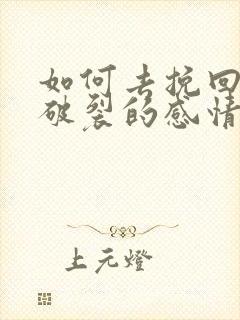 如何去挽回
破裂的感情
上元燈